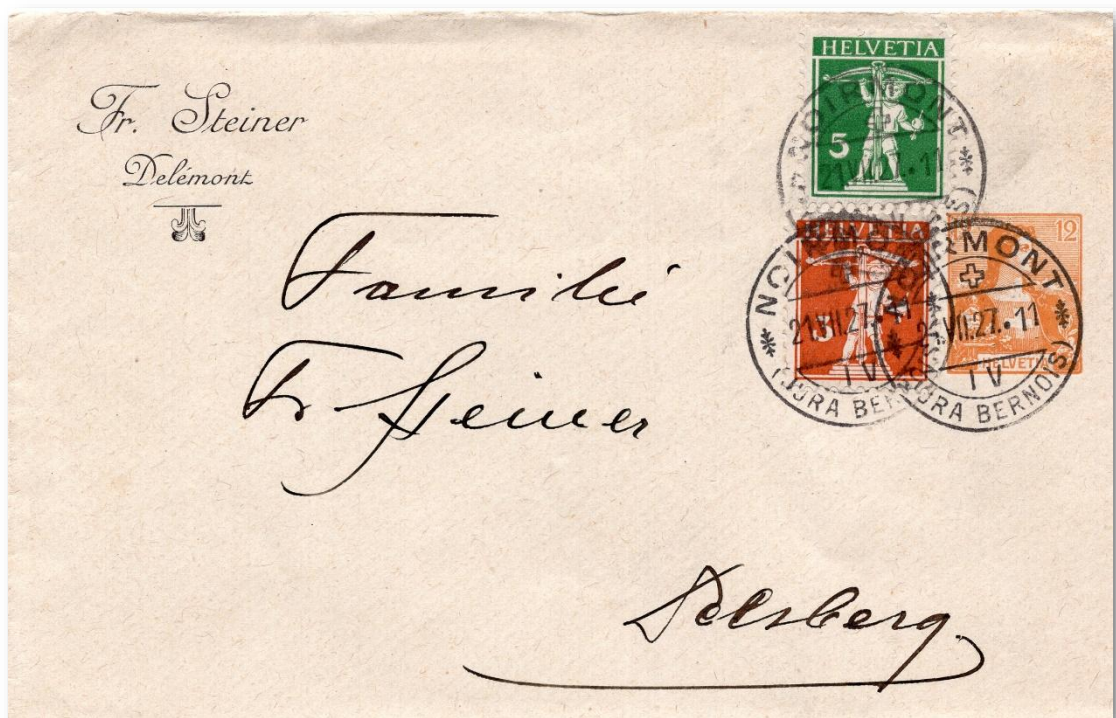 Fr. Steiner
Delémont
HELVETIA
5
NOIRMONT
HELVETIA
3
12
HELVETIA
NOIRMONT
21.VII.27.-11
IV
(JURA BERNOIS)
NOIRMONT
21.VII.27.-11
IV
(JURA BERNOIS)
Familie
Fr. Steiner
Delsberg